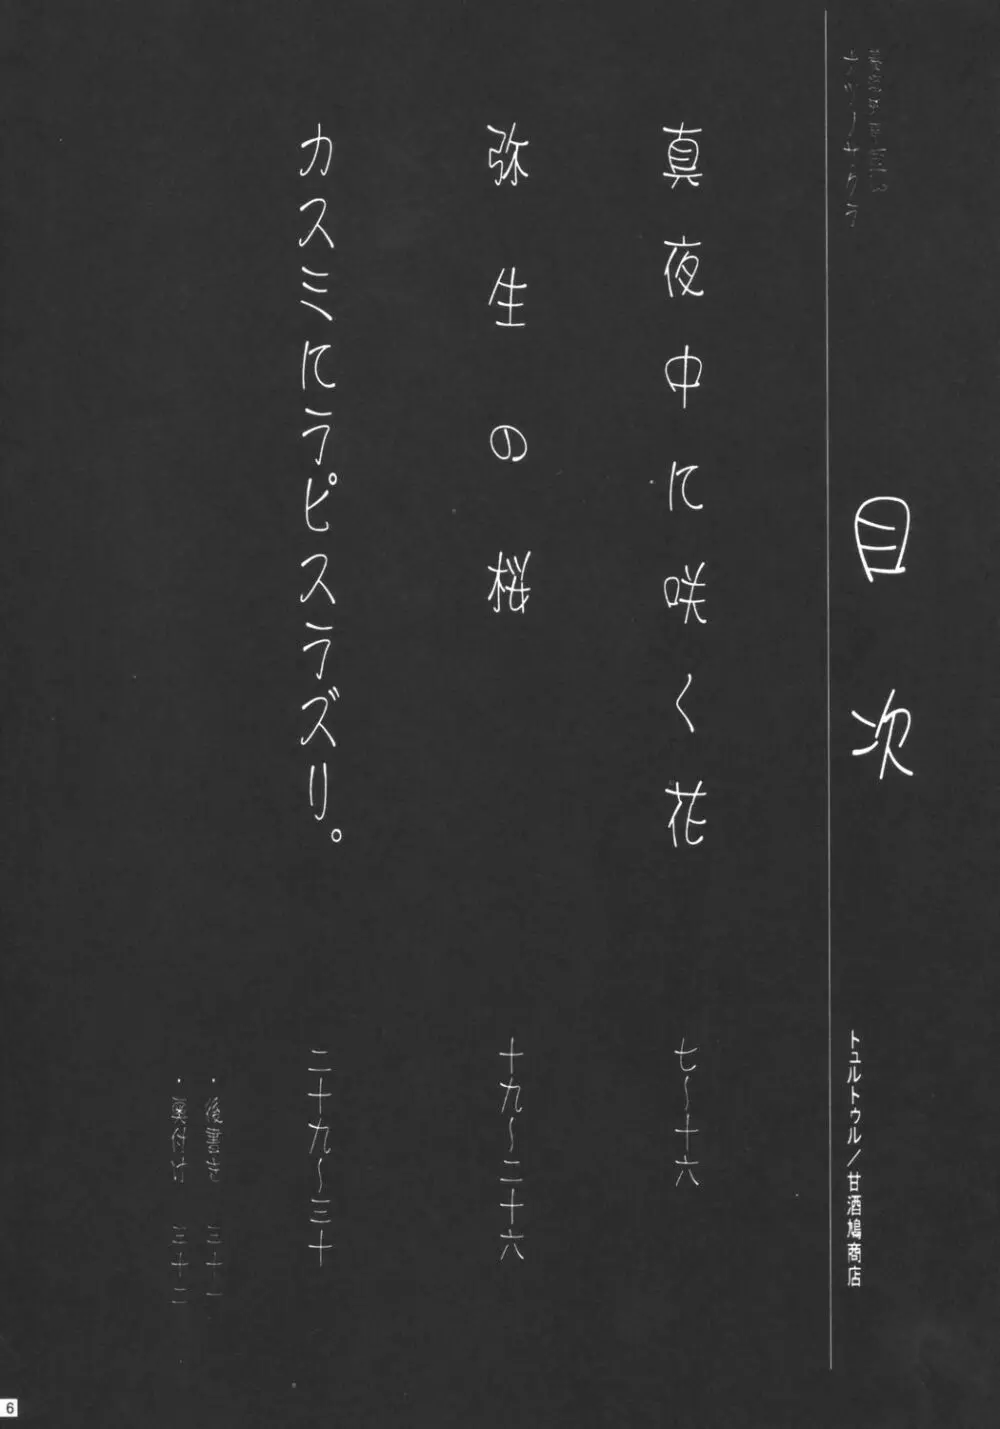 目次
トュルトゥル／甘酒鳩商店
真夜中に咲く花
七〜十六
弥生の桜
十九〜二十六
カスミにラピスラズリ。
二十九〜三十
・後書き 三十一
・奥付け 三十二
6